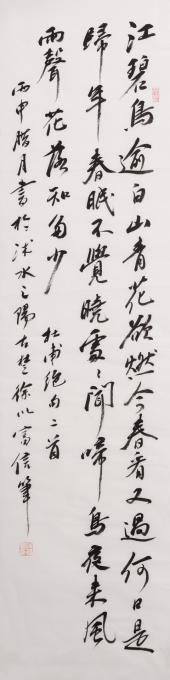 江碧鸟逾白山青花欲燃今春看又過何日是
歸年春眠不覺曉處處聞啼鸟夜来風
雨聲花落知多少 杜甫絕句二首
丙申腊月書於沭水之陽古楚徐以富信筆